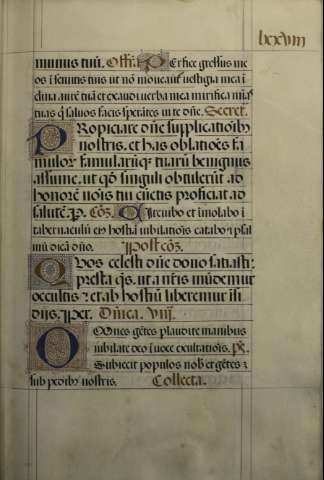 lxxviii
munus tuū. Offī. Perfice gressus me
os ī semitis tuis ut nō moveant̄ vestigia mea ī
clina aurē tuā et exaudi verba mea mirifica mīas
tuas q̄ salvos facis sperātes in te dn̄e. Secret.
PRopiciare dn̄e supplicatiōib9
nostris, et has oblatiōes fa
mulor̄ famularūq̄ tuarū benignus
assume, ut qd̄ singuli obtulerūt ad
honorē nōis tui cūctis proficiat ad
salutē. P. Cōz. Circuibo et īmolabo ī
tabernaculū ei9 hostiā iubilatiōis cātabo et psal
mū dicā dn̄o. Post cōz.
QVos celesti dn̄e dono satiasti:
presta q̄s, ut a nr̄is mūdemur
occultis et ab hostiū liberemur īsi
dijs. Per. Dn̄ica. Vij.
OMnes gētes plaudite manibus
iubilate deo ī voce exultatiōis. ps.
Subiecit populos nob̄ et gētes
sub pedib9 nostris. Collecta.